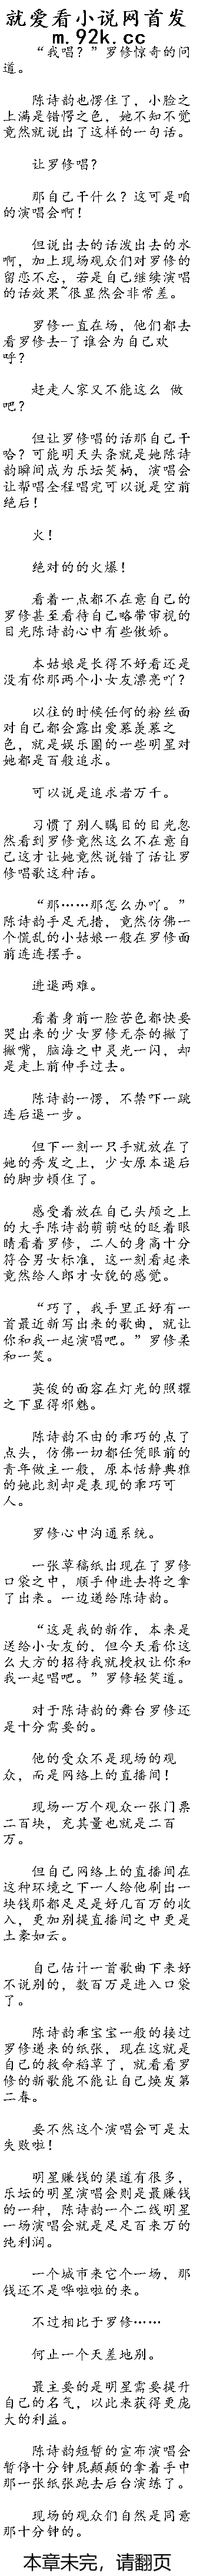 就爱看小说网首发
m.92k.cc
“我唱？”罗修惊奇的问
道。
陈诗韵也愣住了，小脸之
上满是错愕之色，她不知不觉
竟然就说出了这样的一句话。
让罗修唱？
那自己干什么？这可是咱
的演唱会啊！
但说出去的话泼出去的水
啊，加上现场观众们对罗修的
留恋不忘，若是自己继续演唱
的话效果~很显然会非常差。
罗修一直在场，他们都去
看罗修去-了谁会为自己欢
呼？
赶走人家又不能这么 做
吧？
但让罗修唱的话那自己干
哈？可能明天头条就是她陈诗
韵瞬间成为乐坛笑柄，演唱会
让帮唱全程唱完可以说是空前
绝后！
火！
绝对的的火爆！
看着一点都不在意自己的
罗修甚至看待自己略带审视的
目光陈诗韵心中有些傲娇。
本姑娘是长得不好看还是
没有你那两个小女友漂亮吖？
以往的时候任何的粉丝面
对自己都会露出爱慕羡慕之
色，就是娱乐圈的一些明星对
她都是百般追求。
可以说是追求者万千。
习惯了别人瞩目的目光忽
然看到罗修竟然这么不在意自
己这才让她竟然说错了话让罗
修唱歌这种话。
“那……那怎么办吖。”
陈诗韵手足无措，竟然仿佛一
个慌乱的小姑娘一般在罗修面
前连连摆手。
进退两难。
看着身前一脸苦色都快要
哭出来的少女罗修无奈的撇了
撇嘴，脑海之中灵光一闪，却
是走上前伸手过去。
陈诗韵一愣，不禁吓一跳
连后退一步。
但下一刻一只手就放在了
她的秀发之上，少女原本退后
的脚步顿住了。
感受着放在自己头颅之上
的大手陈诗韵萌萌哒的眨着眼
睛看着罗修，二人的身高十分
符合男女标准，这一刻看起来
竟然给人郎才女貌的感觉。
“巧了，我手里正好有一
首最近新写出来的歌曲，就让
你和我一起演唱吧。”罗修柔
和一笑。
英俊的面容在灯光的照耀
之下显得邪魅。
陈诗韵不由的乖巧的点了
点头，仿佛一切都任凭眼前的
青年做主一般，原本恬静典雅
的她此刻却是表现的乖巧可
人。
罗修心中沟通系统。
一张草稿纸出现在了罗修
口袋之中，顺手伸进去将之拿
了出来。一边递给陈诗韵。
“这是我的新作，本来是
送给小女友的，但今天看你这
么大方的招待我就授权让你和
我一起唱吧。”罗修轻笑道。
对于陈诗韵的舞台罗修还
是十分需要的。
他的受众不是现场的观
众，而是网络上的直播间！
现场一万个观众一张门票
二百块，充其量也就是二百
万。
但自己网络上的直播间在
这种环境之下一人给他刷出一
块钱那都足足是好几百万的收
入，更加别提直播间之中更是
土豪如云。
自己估计一首歌曲下来好
不说别的，数百万是进入口袋
了。
陈诗韵乖宝宝一般的接过
罗修递来的纸张，现在这就是
自己的救命稻草了，就看看罗
修的新歌能不能让自己焕发第
二春。
要不然这个演唱会可是太
失败啦！
明星赚钱的渠道有很多，
乐坛的明星演唱会则是最赚钱
的一种，陈诗韵一个二线明星
一场演唱会就是足足百来万的
纯利润。
一个城市来它个一场，那
钱还不是哗啦啦的来。
不过相比于罗修……
何止一个天差地别。
最主要的是明星需要提升
自己的名气，以此来获得更庞
大的利益。
陈诗韵短暂的宣布演唱会
暂停十分钟屁颠颠的拿着手中
那一张纸张跑去后台演练了。
现场的观众们自然是同意
那十分钟的。
本章未完，请翻页